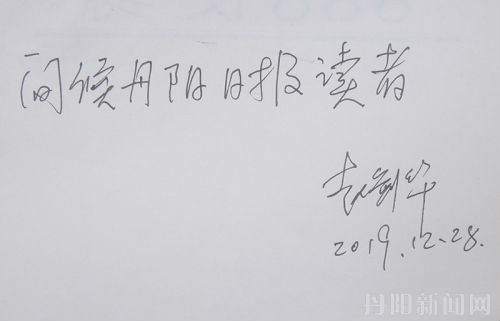 问候丹阳日报读者
袁剑华
2019.12.28.
丹阳新闻网